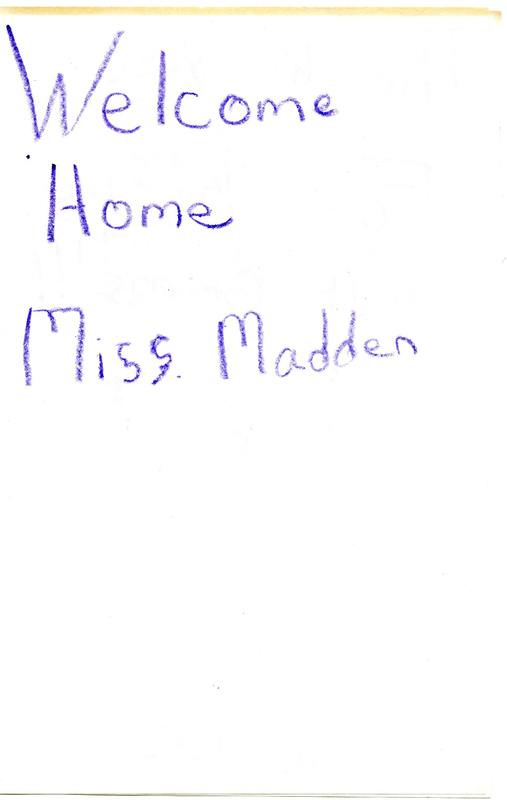 Welcome
Home
Miss. Madden